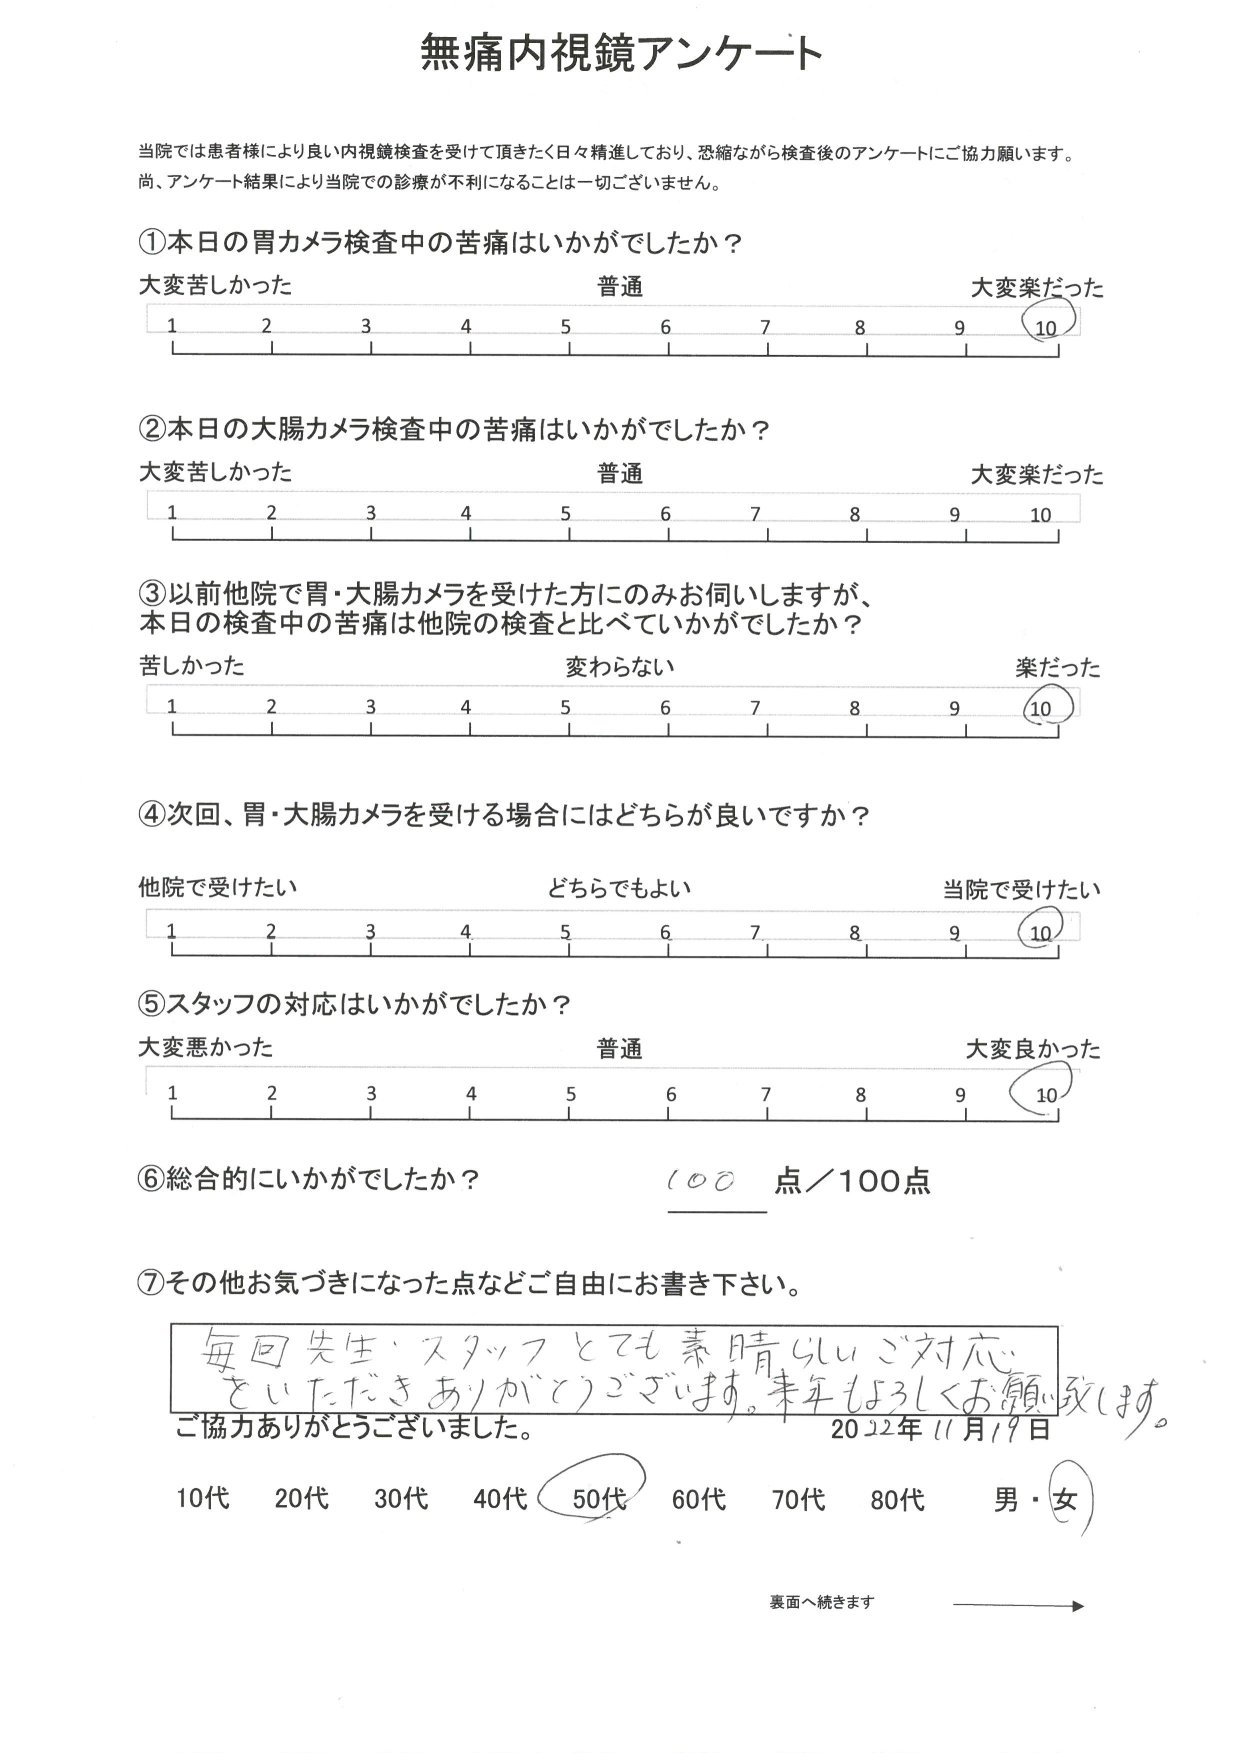 無痛内視鏡アンケート
当院では患者様により良い内視鏡検査を受けて頂きたく日々精進しており、恐縮ながら検査後のアンケートにご協力願います。
尚、アンケート結果により当院での診療が不利になることは一切ございません。
①本日の胃カメラ検査中の苦痛はいかがでしたか？
大変苦しかった 普通 大変楽だった
1 2 3 4 5 6 7 8 9 10
②本日の大腸カメラ検査中の苦痛はいかがでしたか？
大変苦しかった 普通 大変楽だった
1 2 3 4 5 6 7 8 9 10
③以前他院で胃・大腸カメラを受けた方にのみお伺いしますが、
本日の検査中の苦痛は他院の検査と比べていかがでしたか？
苦しかった 変わらない 楽だった
1 2 3 4 5 6 7 8 9 10
④次回、胃・大腸カメラを受ける場合にはどちらが良いですか？
他院で受けたい どちらでもよい 当院で受けたい
1 2 3 4 5 6 7 8 9 10
⑤スタッフの対応はいかがでしたか？
大変悪かった 普通 大変良かった
1 2 3 4 5 6 7 8 9 10
⑥総合的にいかがでしたか？ 100 点／100点
⑦その他お気づきになった点などご自由にお書き下さい。
毎回先生・スタッフとても素晴らしいご対応
をいただきありがとうございます。来年もよろしくお願い致します。
ご協力ありがとうございました。 2022年11月19日
10代 20代 30代 40代 50代 60代 70代 80代 男・女
裏面へ続きます